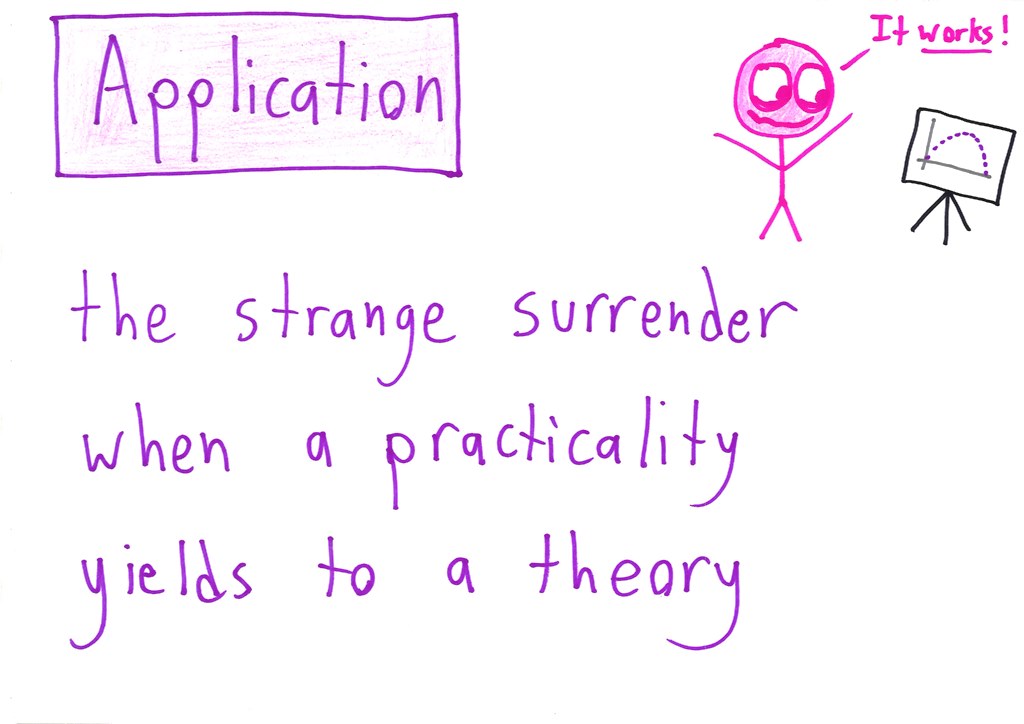 Application
It works!
the strange surrender
when a practicality
yields to a theory